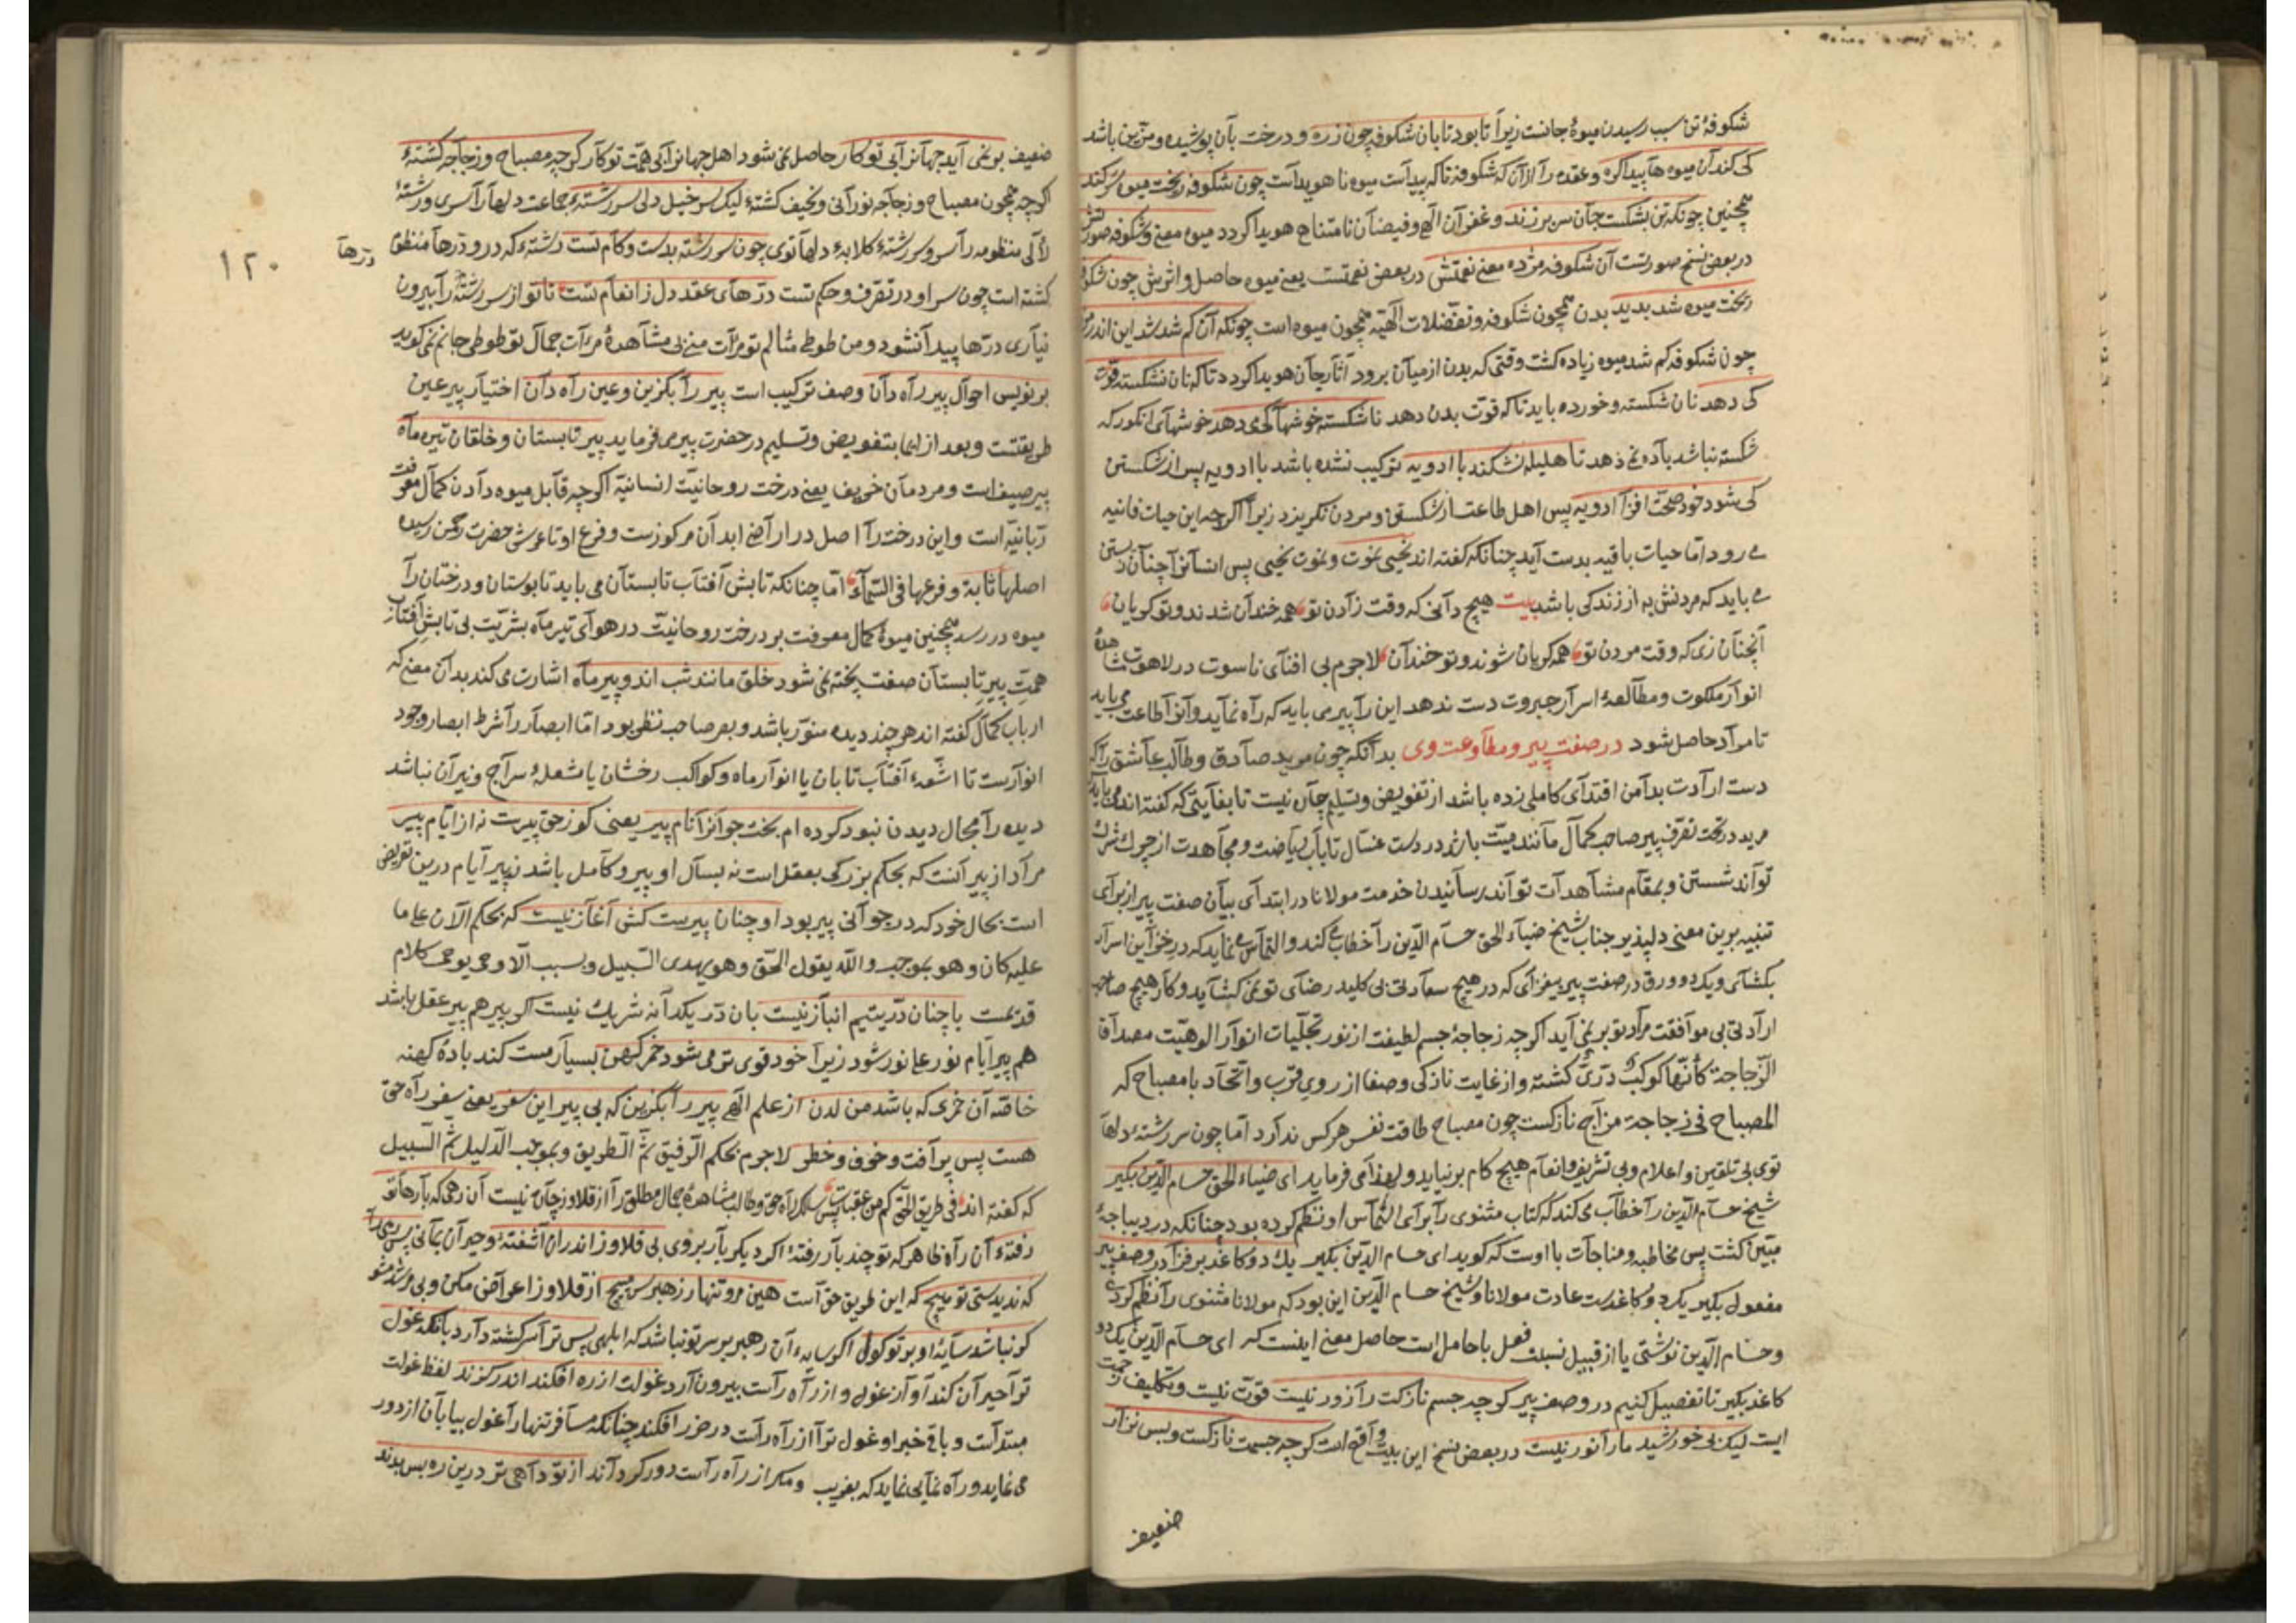 شکوفهٔ تن سبب رسیدن میوهٔ جانست زیرا تا بود تابان شکوفه چون زره و درخت بآن پوشیده و مزین باشد
کی کند آن میوه ها پیدا کره و عقده را از آن که شکوفه تا که پیداست میوه نا هویداست چون شکوفه ریخت میوه سر کند
همچنین چونکه تن بشکست جان سر بر زند و غفران الهی و فیضان نامتناهی هویدا کردد میوه معنی و شکوفه صورتش
در بعض نسخ صورتست آن شکوفه مژده معنی نعمتش در بعض نعمتست یعنی میوه حاصل و اثریش چون شکوفه
ریخت میوه شد بدید بدن همچون شکوفه و تفضلات الهیه همچون میوه است چونکه آن کم شد شد این اندر مزید
چون شکوفه کم شد میوه زیاده کشت وقتی که بدن از میان برود آثار جان هویدا کردد تا که نان نشکست قوت
کی دهد نان شکسته و خورده باید تا که قوّت بدن دهد ناشکسته خوشها کی می دهد خوشهای انکور که
شکسته نباشد باده نمی دهد تا هلیله نشکند با ادویه ترکیب نشده باشد با ادویه پس از شکستن
کی شود خود صحت افزا ادویه پس اهل طاعت از شکستن و مردن نکریزد زیرا اکرچه این حیات فانیه
می رود امّا حیات باقیه بدست آید چنانکه کفته اند نحیی نموت و نموت نحیی پس انسانرا چنان زیستن
می باید که مردنش به از زندکی باشد بیت هیچ دانی که وقت زادن تو همه خندان شدند و تو کریان
آنچنان زی که وقت مردن تو همه کریان شوند و تو خندان لاجرم بی افنای ناسوت در لاهوت مشاهدهٔ
انوار ملکوت و مطالعهٔ اسرار جبروت دست ندهد این را پیر می باید که راه نماید و آنرا طاعت می باید
تا مراد حاصل شود در صفت پیر و مطاوعت وی بدانکه چون مرید صادق و طالب عاشق را که
دست ارادت بدامن اقتدای کاملی زده باشد از تفویض و تسلیم چاره نیست تا بغایتی که کفته اند می باید
مرید در تحت تصرف پیر صاحب کمال مانند میّت باشد در دست غسّال تا بآب ریاضت و مجاهدت از چرک شرک
تواند شستن و بمقام مشاهدات تواند رسانیدن خدمت مولانا در ابتدای بیان صفت پیر از برای
تنبیه برین معنی دلپذیر جناب شیخ ضیاء الحق حسام الدّین را خطاب می کند و التماس می نماید که در خزاین اسرار
بکشای و یک دو ورق در صفت پیر بیفزای که در هیچ سعادتی بی کلید رضای تو نمی کشاید و کار هیچ صاحب
ارادتی بی موافقت مراد تو بر نمی آید اکرچه زجاجهٔ جسم لطیفت از نور تجلّیات انوار الوهیّت مصداق
الزّجاجة کأنّها کوکب درّیّ کشته و از غایت نازکی و صفا از روی قرب و اتّحاد با مصباح که
المصباح فی زجاجة مزاج نازکست چون مصباح طاقت نفس هرکس ندارد امّا چون سررشتهٔ دلها
توی بی تلقین و اعلام و بی تشریف و انعام هیچ کام بر نیاید و لهذا می فرماید ای ضیاء الحق حسام الدّین بکیر
شیخ حسام الدّین را خطاب می کند که کتاب مثنوی را برای التماس او نظم کرده بود چنانکه در دیباجهٔ
مبیّن کشت پس مخاطبه و مناجات با اوست که کوید ای حسام الدّین بکیر یک دو کاغذ بر فزا در وصف پیر
مفعول بکیر یک دو کاغدست عادت مولانا و شیخ حسام الدّین این بود که مولانا مثنوی را نظم کردی
و حسام الدّین نوشتی یا از قبیل نسبت فعل با حاصل است حاصل معنی اینست که ای حسام الدّین یک دو
کاغد بکیر تا تفصیل کنیم در وصف پیر کرچه جسم نازکت را زور نیست قوّت نیست و تکلیف زحمت
ایت لیک بی خورشید ما را نور نیست در بعض نسخ این بیت واقع است کرچه جسمت نازکست و بس نزار
ضعیف
ضعیف بر نمی آید جهانرا بی تو کار حاصل نمی شود اهل جهانرا بی همّت تو کار کرچه مصباح و زجاجه کشتهٔ
اکرچه همچون مصباح و زجاجه نورانی و نحیف کشتهٔ لیک سر خیل دلی سر رشتهٔ جماعت دلها را سری و رشتهٔ
لآلی منظومه را سر و سر رشتهٔ کلابهٔ دلها توی چون سر رشته بدست و کام تست رشتهٔ که در و درها منظوم
درها
۱۲۰
کشته است چون سر او در تصرف و حکم تست درّهای عقد دل ز انعام تست تا تو از سر رشته را بیرون
نیاری درّها پیدا نشود و من طوطی مثالم تو مرآت منی بی مشاهدهٔ مرآت جمال تو طوطی جانم نمی کوید
بر نویس احوال پیر راه دان وصف ترکیب است پیر را بکزین و عین راه دان اختیار پیر عین
طریقتست و بعد از ایما بتفویض و تسلیم در حضرت پیر می فرماید پیر تابستان و خلقان تیره ماه
پیر صیف است و مردمان خریف یعنی درخت روحانیّت انسانیّه اکرچه قابل میوه دادن کمال معرفت
ربّانیّه است و این درخت را اصل در اراضی ابدان مرکوزست و فرع او تا عرش حضرت رحمن رسیده
اصلها ثابة و فرعها فی السّماء امّا چنانکه تابش آفتاب تابستان می باید تا بوستان و درختان را
میوه در رسد همچنین میوهٔ کمال معرفت بر درخت روحانیّت در هوای تیر ماه بشریّت بی تابش آفتاب
همّت پیر تابستان صفت پخته نمی شود خلق مانند شب اند و پیر ماه اشارت می کند بدان معنی که
ارباب کمال کفته اند هرچند دیده منوّر باشد و بصر صاحب نظر بود امّا ابصار را شرط ابصار وجود
انوارست تا اشعّهٔ آفتاب تابان یا انوار ماه و کواکب رخشان یا شعلهٔ سراج و نیران نباشد
دیده را مجال دیدن نبود کرده ام بخت جوانرا نام پیر یعنی کو ز حق پیرست نه از ایّام پیر
مراد از پیر آنست که بحکم بزرکی بعقل است نه بسال او پیر و کامل باشد نه پیر ایّام درین تعریض
است بحال خود که در جوانی پیر بود او چنان پیرست کش آغاز نیست که بحکم الآن علی ما
علیه کان و هو بموجب و اللّه یقول الحقّ و هو یهدی السّبیل و بسبب الّا وحی یوحی کلام
قدیمست با چنان درّ یتیم انباز نیست بان درّ یکدانه شریک نیست اکر پیر هم پیر عقل باشد
هم پیر ایّام نور علی نور شود زیرا خود قوی تر می شود خمر کهن بسیار مست کند بادهٔ کهنه
خاصّه آن خمری که باشد من لدن از علم الهی پیر را بکزین که بی پیر این سفر یعنی سفر راه حق
هست پس پر آفت و خوف و خطر لاجرم بحکم الرّفیق ثمّ الطریق و بموجب الدّلیل ثمّ السّبیل
که کفته اند فی طریق الحق کم من عقبات پس سالک راه حق و طالب مشاهدهٔ جمال مطلق را از قلاوز چاره نیست آن رهی که بارها تو
رفتهٔ آن راه ظاهر که تو چند بار رفتهٔ اکر دیکر بار بروی بی قلاوز اندران آشفتهٔ و حیران بمانی پس رهی را
که ندیدستی تو هیچ که این طریق حق است هین مرو تنها ز رهبر سر مپیچ از قلاوز اعراض مکن و بی مرشد مشو
کر نباشد سایهٔ او بر تو کول اکر سایهٔ آن رهبر بر سر تو نباشد که ابلهی پس ترا سرکشته دارد بانک غول
ترا حیران کند آواز غول و از راه راست بیرون آرد غولت از ره افکند اندر کزند لفظ غولت
مبتداست و باقی خبر او غول ترا از راه راست در ضرر افکند چنانکه مسافر تنها را غول بیابان از دور
می نماید و راه نمایی نماید که بفریب و مکر از راه راست دور کرداند از تو داهی تر درین ره بس بدند